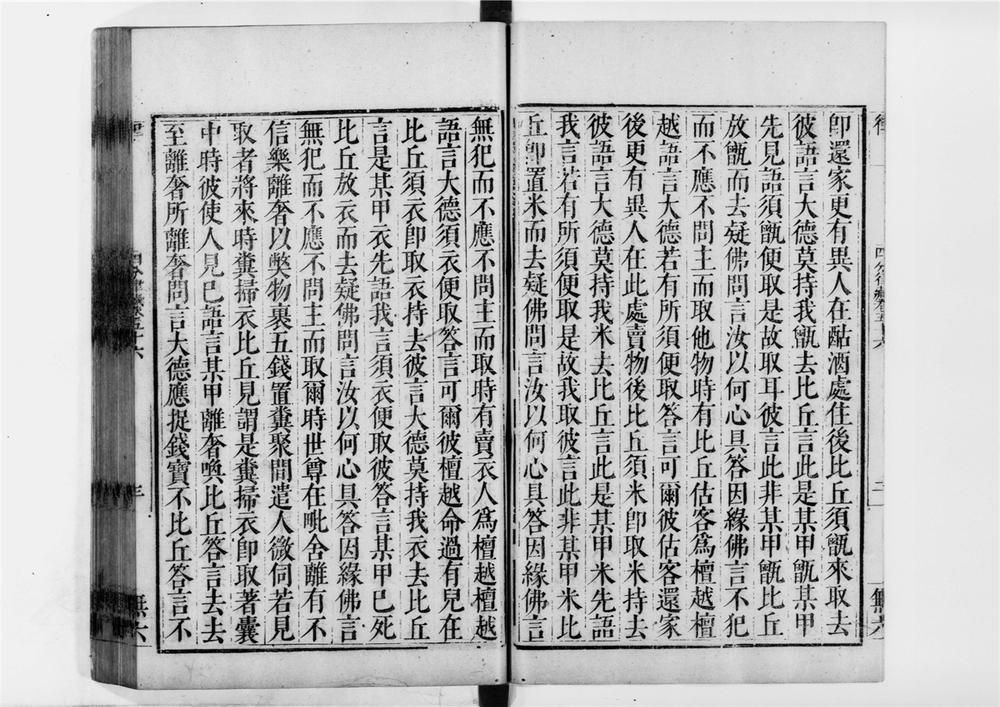 卽還家更有異人在酤酒處住後比丘須甑來取去
彼語言大德莫持我甑去比丘言此是某甲甑某甲
先見語須甑便取是故取耳彼言此非某甲甑比丘
放甑而去疑佛問言汝以何心具答因緣佛言不犯
而不應不問主而取他物時有比丘估客爲檀越檀
越語言大德若有所須便取答言可爾彼估客還家
後更有異人在此處賣物後比丘須米卽取米持去
彼語言大德莫持我米去比丘言此是某甲米先語
我言若有所須便取是故我取彼言此非某甲米比
丘卽置米而去疑佛問言汝以何心具答因緣佛言
無犯而不應不問主而取時有賣衣人爲檀越檀越
語言大德須衣便取答言可爾彼檀越命過有兒在
比丘須衣卽取衣持去彼言大德莫持我衣去比丘
言是某甲衣先語我言須衣便取彼答言某甲已死
比丘放衣而去疑佛問言汝以何心具答因緣佛言
無犯而不應不問主而取爾時世尊在毗舍離有不
信樂離奢以㢢物裹五錢置糞聚間遣人微伺若見
取者將來時糞掃衣比丘見謂是糞掃衣卽取著囊
中時彼使人見已語言某甲離奢喚比丘答言去去
至離奢所離奢問言大德應捉錢寶不比丘答言不